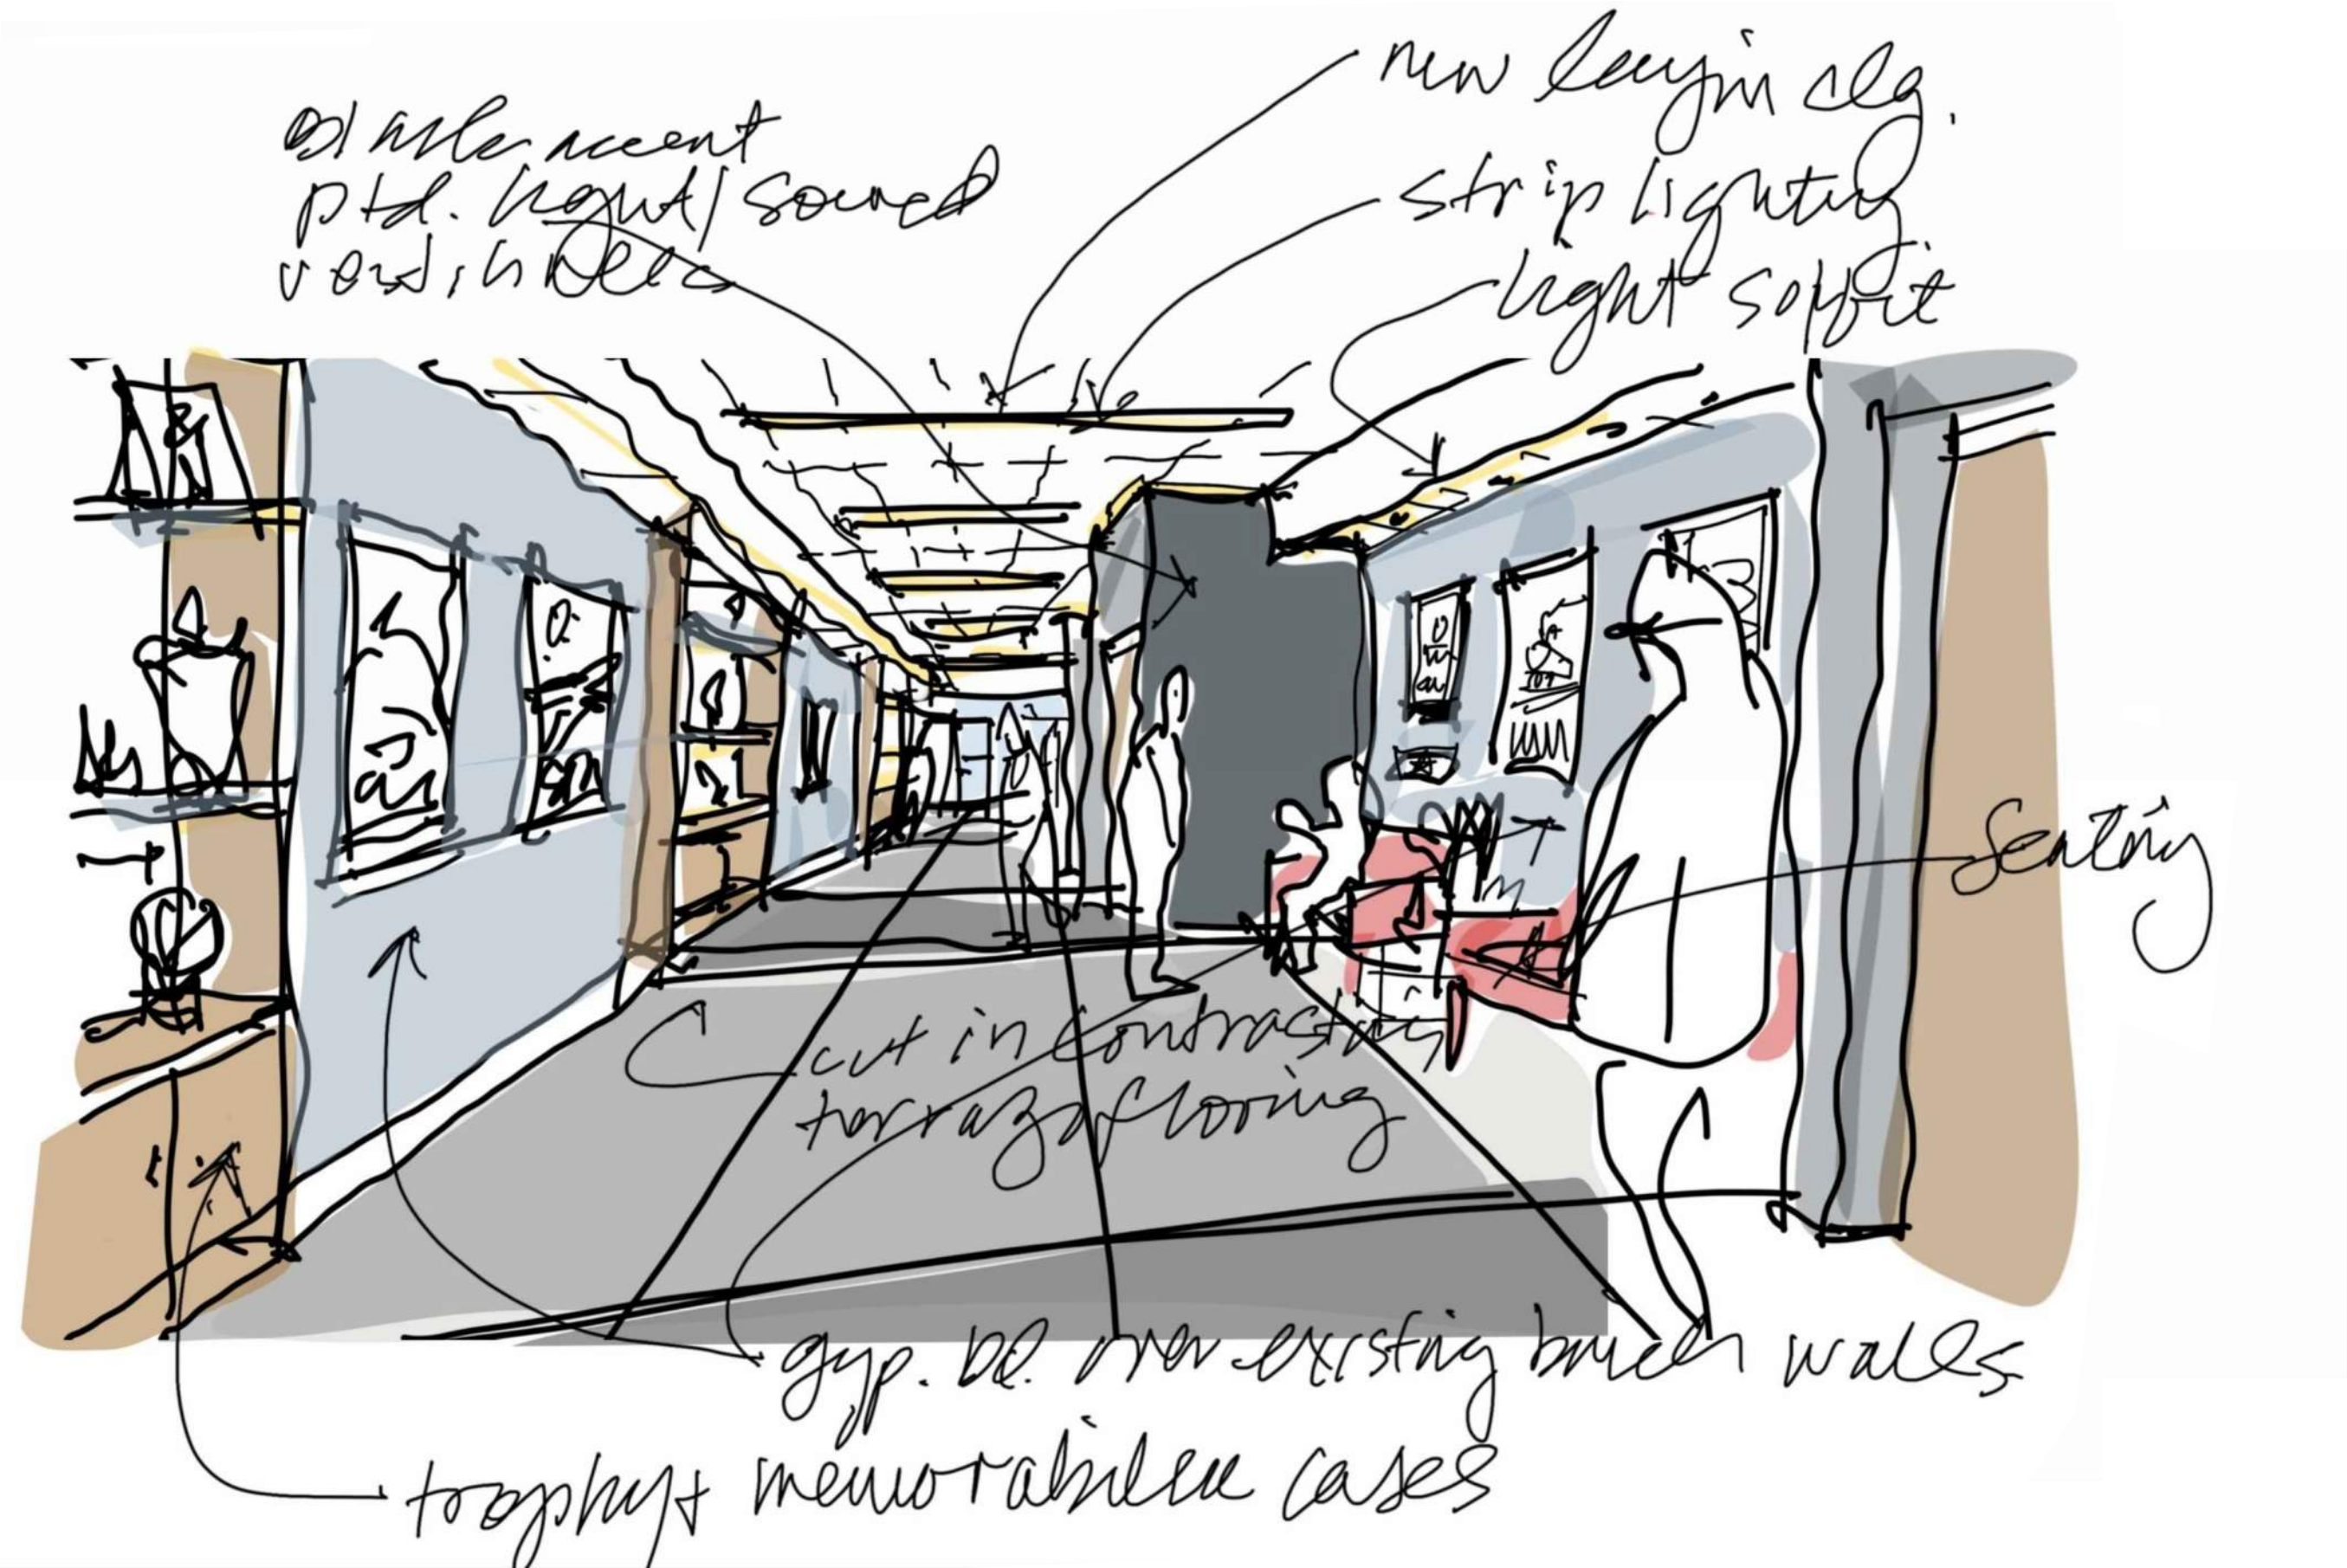 accent
ptd. light/sound
new layin clg.
strip lighting
light soffit
seating
cut in contrasting
terrazo flooring
gyp. bd. over existing brick walls
trophy + memorabilia cases